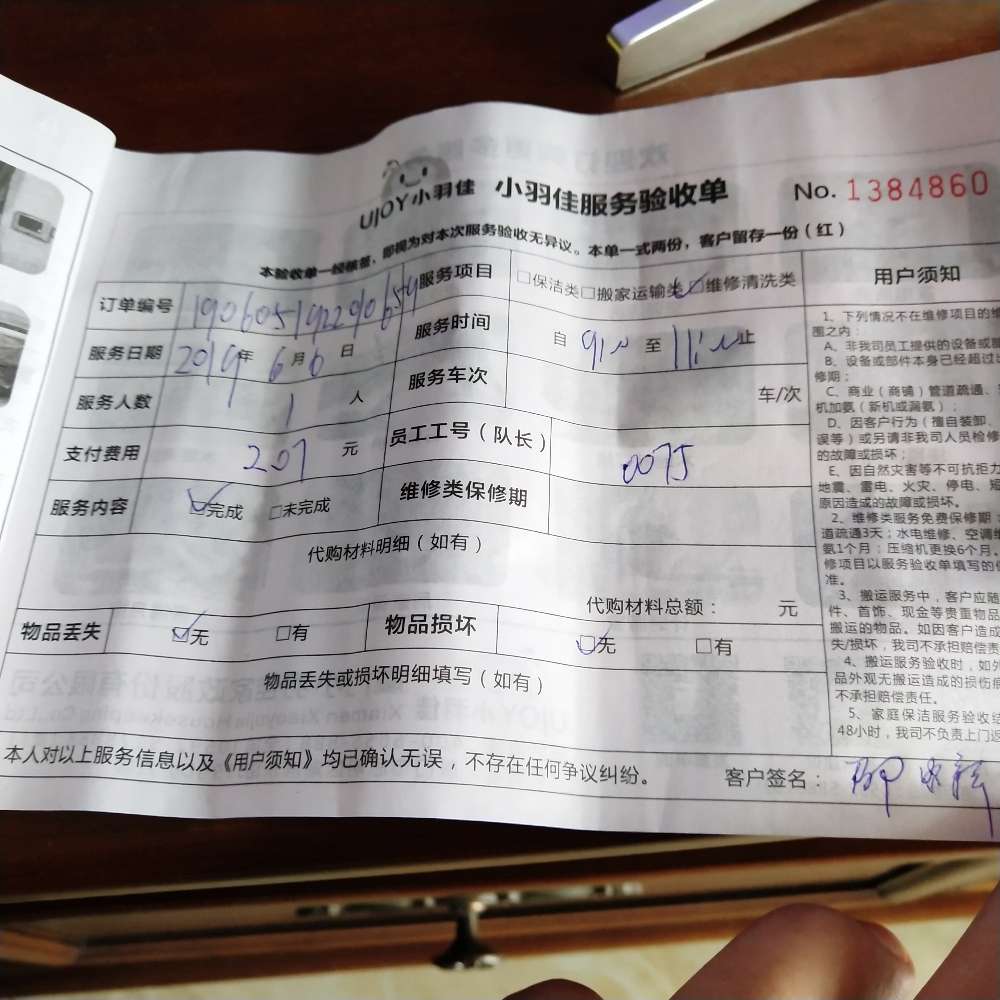 UJOY小羽佳 小羽佳服务验收单 No. 1384860
本验收单一经核签，即视为对本次服务验收无异议。本单一式两份，客户留存一份（红）
订单编号 190605192290659 服务项目 □保洁类□搬家运输类☑维修清洗类
服务日期 2019年6月6日 服务时间 自 9:00 至 11:00 止
服务人数 1 人 服务车次 车/次
支付费用 207 元 员工工号（队长） 0075
服务内容 ☑完成 □未完成 维修类保修期
代购材料明细（如有）
代购材料总额： 元
物品丢失 ☑无 □有 物品损坏 ☑无 □有
物品丢失或损坏明细填写（如有）
本人对以上服务信息以及《用户须知》均已确认无误，不存在任何争议纠纷。 客户签名：
用户须知
1、下列情况不在维修项目的维
围之内：
A、非我司员工提供的设备或
B、设备或部件本身已经超过
修期；
C、商业（商铺）管道疏通、
机加氨（新机或漏氨）；
D、因客户行为（擅自装卸、
误等）或另请非我司人员检修
的故障或损坏；
E、因自然灾害等不可抗拒力
地震、雷电、火灾、停电、短
原因造成的故障或损坏。
2、维修类服务免费保修期：
道疏通3天；水电维修、空调
氨1个月；压缩机更换6个月。
修项目以服务验收单填写的
准。
3、搬运服务中，客户应随
件、首饰、现金等贵重物品
搬运的物品。如因客户造成
失/损坏，我司不承担赔偿责
4、搬运服务验收时，如外
品外观无搬运造成的损伤痕
不承担赔偿责任。
5、家庭保洁服务验收结
48小时，我司不负责上门返